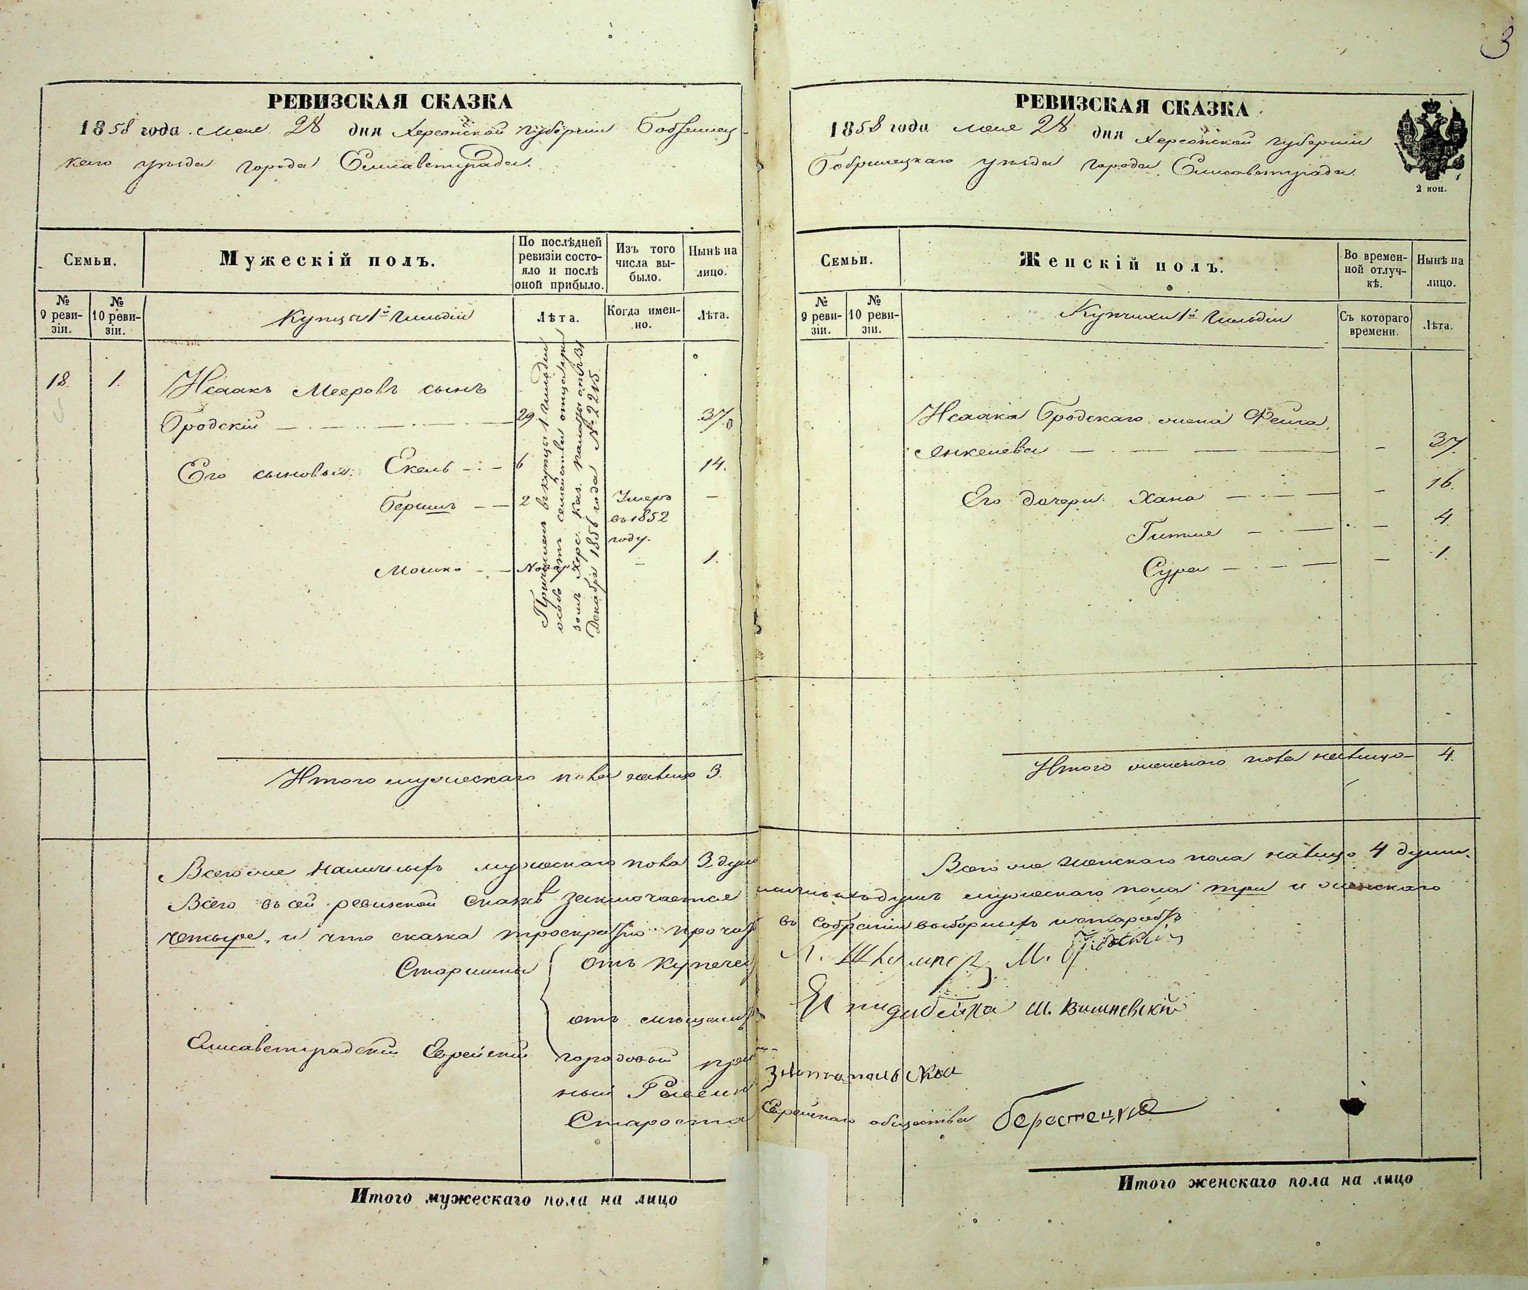 3
РЕВИЗСКАЯ СКАЗКА
1858 года мая 28 дня Херсонской губерніи Бобринец-
каго уѣзда города Елисаветграда.
Семьи.
Мужескій полъ.
По послѣдней ревизіи состояло и послѣ оной прибыло.
Изъ того числа выбыло.
Нынѣ на лицо.
№ 9 ревизіи.
№ 10 ревизіи.
Купцы 1й гильдіи
Лѣта.
Когда именно.
Лѣта.
18. 1. Исаакъ Мееровъ сынъ
Бродскій 29 37.
Его сыновья: Екель 6 14.
Бериш 2 Умеръ въ 1852 году. –
Мошко – 1.
Причисленъ въ купцы 1 гильдіи
особо отъ семейства отца
Херс. Каз. палаты отъ 31
Декабря 1856 года № 2215.
Итого мужескаго пола налицо 3.
Всего же наличныхъ мужескаго пола 3 души
Всего въ сей ревизской сказкѣ заключается
четыре, и что сказка
Старшины
отъ купечес
отъ мѣщанъ
Елисаветградскій Еврейскій
Староста
Итого мужескаго пола на лицо
РЕВИЗСКАЯ СКАЗКА
1858 года мая 28 дня Херсонской губерніи
Бобринецкаго уѣзда города Елисаветграда.
2 коп.
Семьи.
Женскій полъ.
Во временной отлучкѣ.
Нынѣ на лицо.
№ 9 ревизіи.
№ 10 ревизіи.
Купчихи 1й гильдіи
Съ котораго времени.
Лѣта.
Исаака Бродскаго жена Фейга
Янкелева – 37.
Его дочери Хана – 16.
Гитля – 4.
Сура – 1.
Итого женского пола налицо 4.
Всего же женскаго пола налицо 4 души.
душъ мужескаго пола три и женскаго
въ собраніи выборныхъ и старостъ
М. Бродскій
Ш. Вишневскій
Еврейскаго общества Берестецкій
Итого женскаго пола на лицо